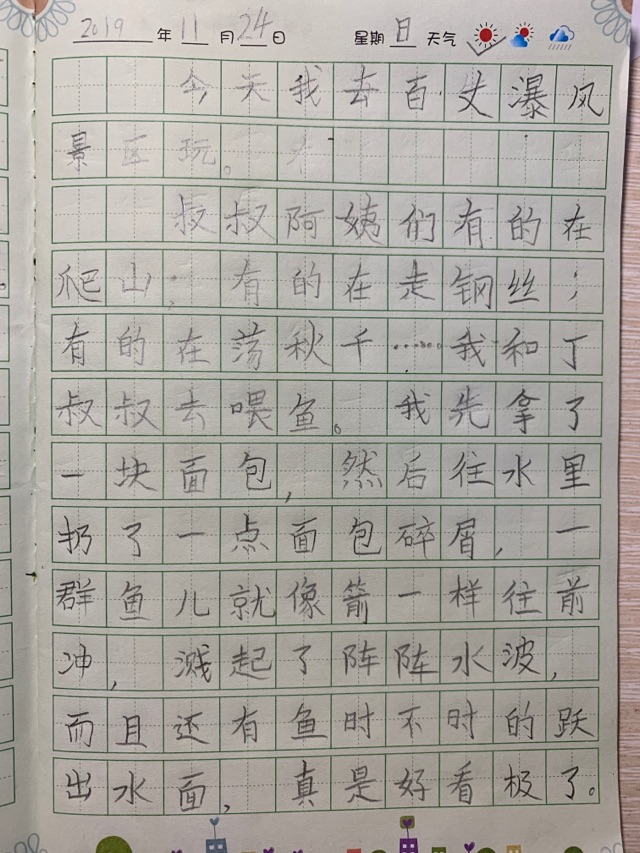 2019年11月24日 星期日 天气
今天我去百丈瀑风
景区玩。
叔叔阿姨们有的在
爬山；有的在走钢丝；
有的在荡秋千……我和丁
叔叔去喂鱼。我先拿了
一块面包，然后往水里
扔了一点面包碎屑，一
群鱼儿就像箭一样往前
冲，溅起了阵阵水波，
而且还有鱼时不时的跃
出水面，真是好看极了。